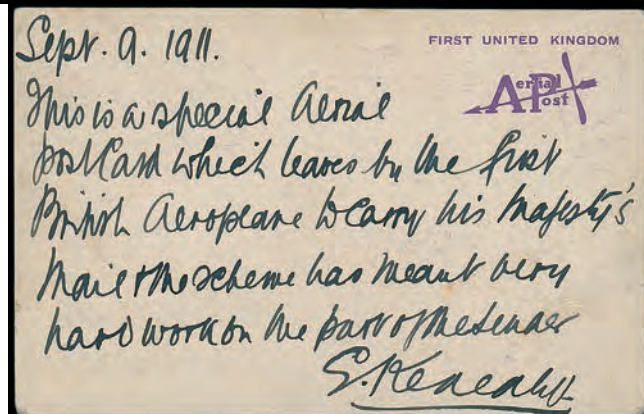 Sept. 9. 1911.
FIRST UNITED KINGDOM
Aerial
Post
This is a special Aerial
post Card which leaves by the first
British Aeroplane to carry his Majesty's
Mail & the scheme has meant very
hard work on the part of the sender